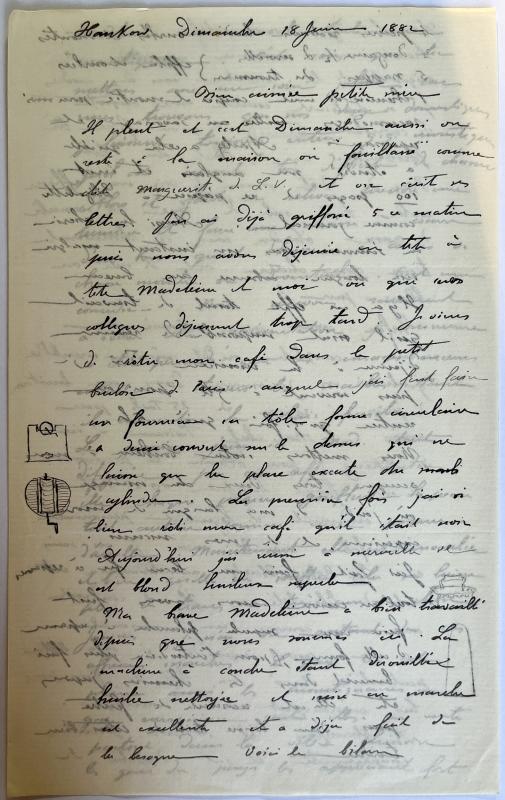 Hankow Dimanche 18 Juin 1882
Bien aimée petite mère
Il pleut et c'est Dimanche aussi on
reste à la maison on fouillasse comme
dit marguerite d. L.V. et on écrit ses
lettres. J'en ai déjà griffonné 5 ce matin
puis nous avons déjeuné en tête à
tête Madeleine et moi vu que nos
collègues déjeunent trop tard. Je viens
d. rôtir mon café dans le petit
bruloir d. Paris auquel j'ai fait faire
un fourneau en tôle forme circulaire
à demi couvert sur le dessus qui ne
laisse que la place exacte du
cylindre. La première fois j'ai si
bien rôti mon café qu'il était noir
Aujourd'hui j'ai réussi à merveille il
est blond huileux superbe
Ma brave Madeleine a bien travaillé
depuis que nous sommes ici. La
machine à coudre étant dérouillée
huilée nettoyée et mise en marche
est excellente et a déjà fait de
la besogne voici le bilan